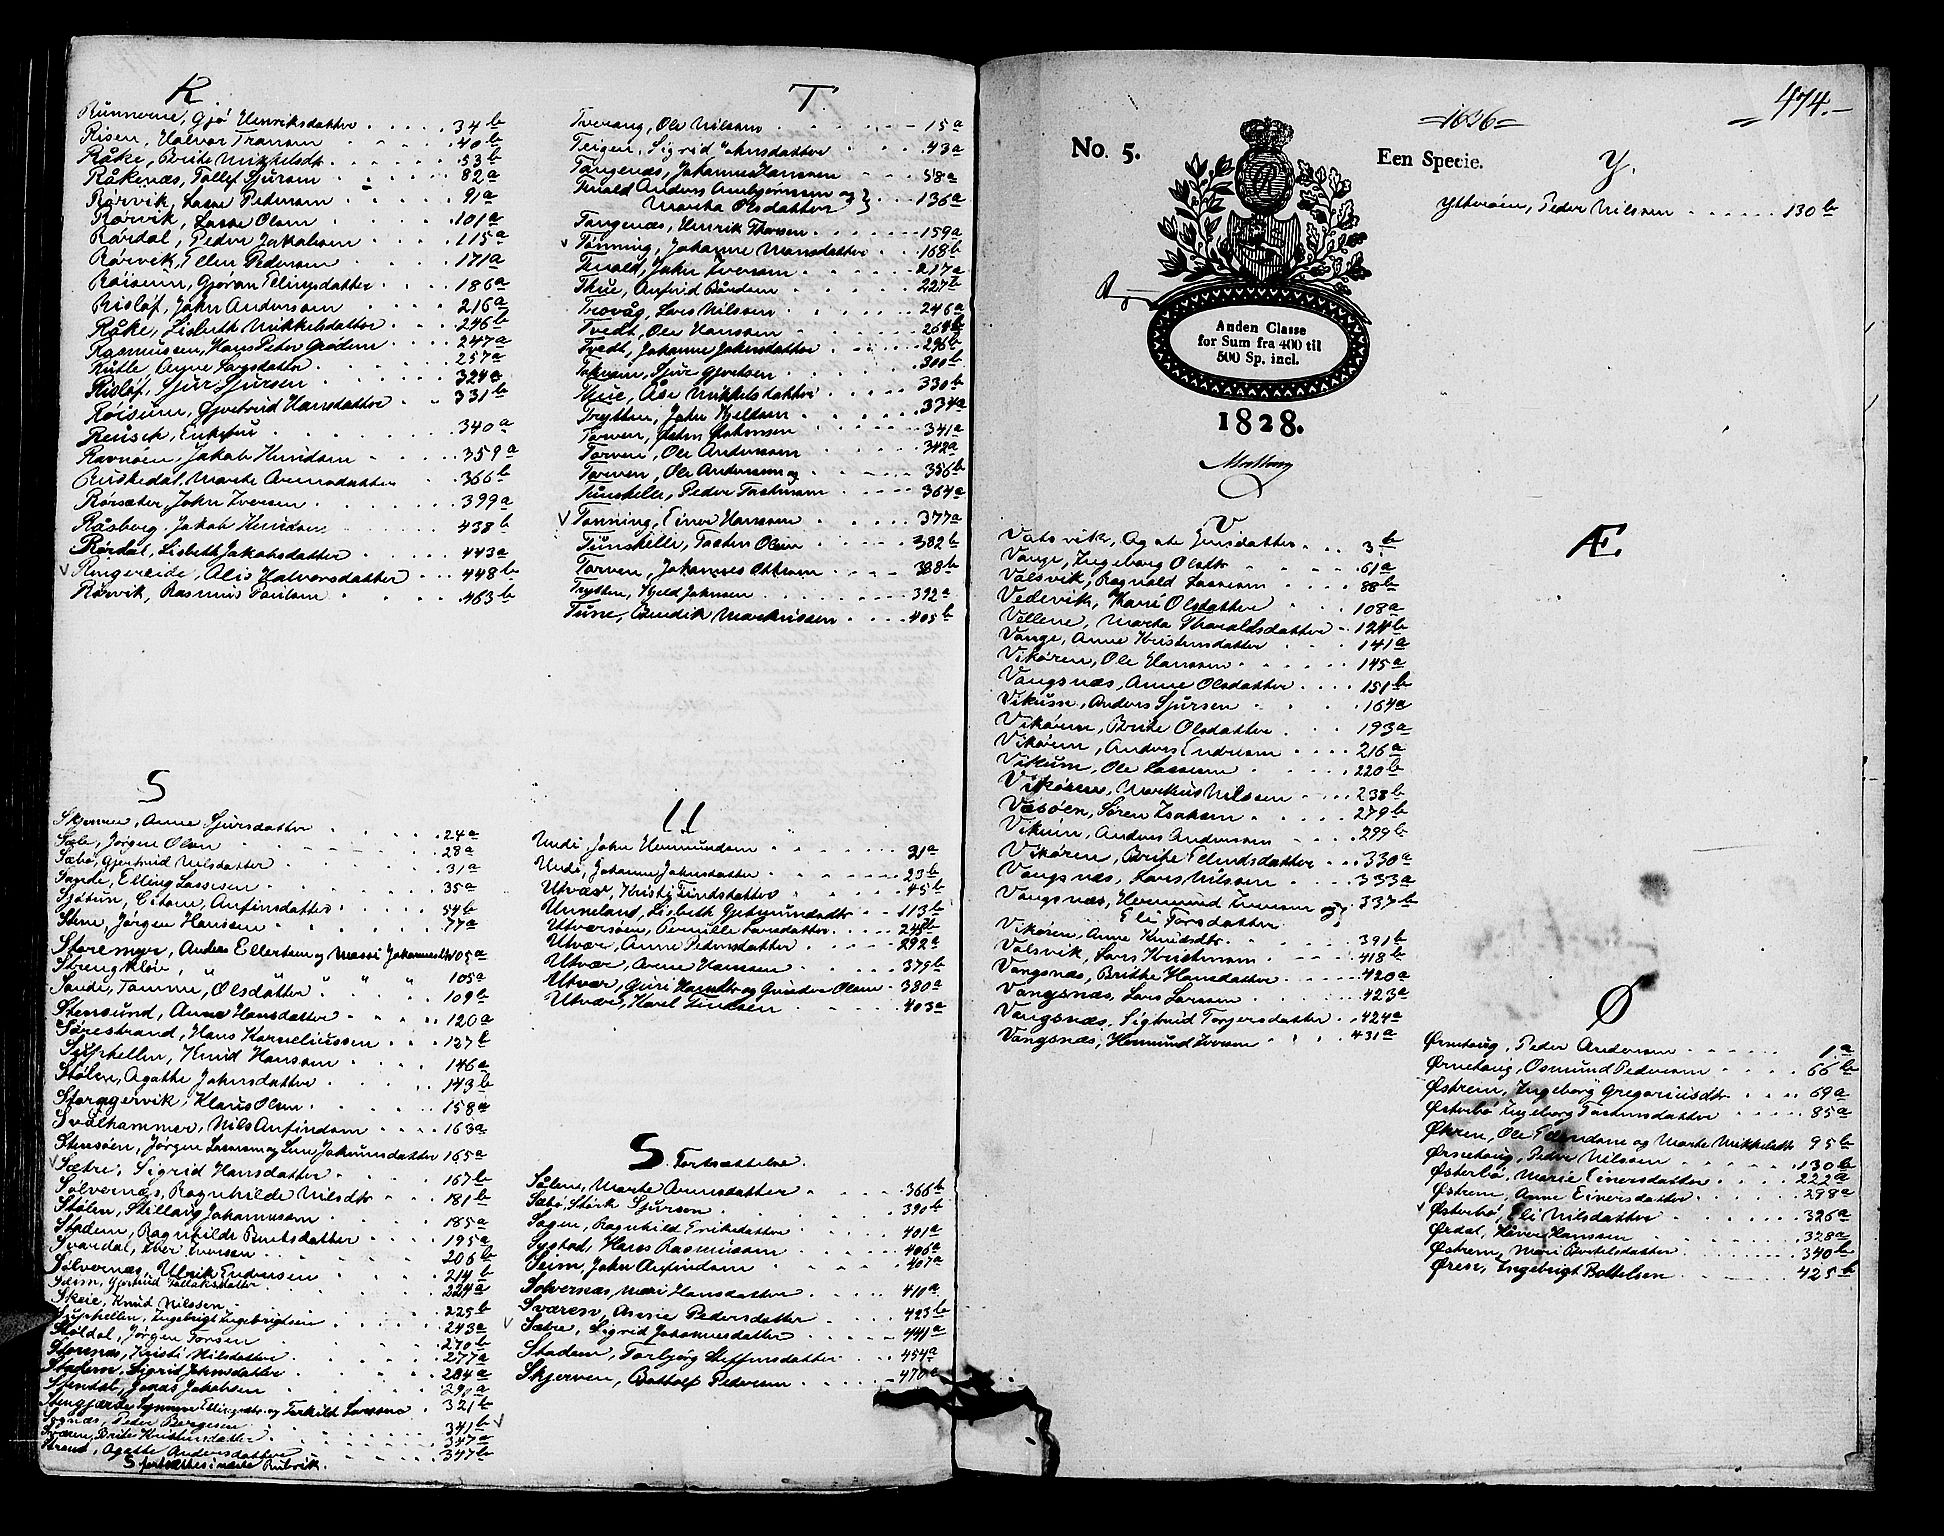 R.
Runnerne, Gjø Henriksdatter 34 b
Risen, Halvor Transen 40 b
Råke, Brite Mikkelsdt. 53 b
Råkenæs, Tollef Sjursen 82 a
Rørvik, Lasse Pedersen 91 a
Rørvik, Lasse Olsen 101 a
Rørdal, Peder Jakobsen 115 a
Rørvik, Ellen Pedersen 171 a
Røisum, Gjøran Elingsdatter 186 a
Risløf, John Anderssen 216 a
Råke, Lisbeth Mikkelsdatter 246 b
Rasmussen, Hans Peter Grødem 247 a
Rutle, Anne Larsdatter 257 a
Risløf, Sjur Sjursen 324 a
Røisum, Gjertrud Hansdatter 331 b
Reusch, Enkefru 340 a
Ravnøen, Jakob Knudsen 359 a
Ruskedal, Marte Arnesdatter 366 b
Rørsæter, John Iversen 399 a
Råsberg, Jakob Knudsen 438 b
Rørdal, Lisbeth Jakobsdatter 443 a
Ringereide, Alis Halvorsdatter 448 b
Rørvik, Rasmus Poulsen 463 b
S
Skjerven, Anne Sjursdatter 24 a
Sæle, Jørgen Olsen 28 a
Sæbø, Gjertrud Nilsdatter 31 a
Sande, Elling Lassesen 35 a
Sjøtun, Anfinsdatter 54 b
Stene, Jørgen Hansen 77 a
Storemyr, Anders Ellertsen og Massi Johannesdt 105 a
Strengkløv, " " " 105 a
Sande, Tomine, Olsdatter 109 b
Stensund, Anne Hansdatter 120 a
Sørestrand, Hans Korneliussen 127 b
Suphellen, Knud Hansen 146 a
Stølen, Agathe Johnsdatter 143 b
Storagervik, Klaus Olsen 158 a
Svalhammer, Nils Anfindsen 163 a
Stensøen, Jørgen Lassesen og Lene Joakumsdatter 165 a
Sætre, Sigrid Hansdatter 167 b
Sølvernæs, Ragnhilde Nilsdtr 181 b
Stølen, Stillaug Johannessen 185 a
Stadem, Ragnhilde Bentsdatter 195 a
Svardal, Iver Iversen 206 b
Sølvernæs, Ulrik Endresen 214 b
Seim, Gjertrud Tollaksdatter 224 a
Skeie, Knud Nilssen 225 b
Suphellen, Ingebrigt Ingebrigtsen 243 a
Støldal, Jørgen Torsen 270 b
Stornæs, Kristi Nilsdatter 277 a
Stadem, Sigrid Johnsdatter 284 a
Stendal, Jonas Jakobsen 290 a
Stengjærde Synneve Ellingsdtr. og Terkild Larssen 321 b
Sognæs, Peder Børgesen 341 b
Sværen, Brite Kristensdatter 347 a
Strand, Agathe Andersdatter 347 b
S fortsættes i næste Rubrik.
T.
Tverang, Ole Nilssen 15 a
Teigen, Sigrid Johnsdatter 43 a
Tangenæs, Johannes Hanssen 58 a
Tuald Anders Ambjørnsen og
Martha Olsdatter } 136 a
Tangenæs, Henrik Thorsen 159 a
Tønning, Johanne Monsdatter 168 b
Tuald, John Iversen 217 a
Thue, Anfind Bårdsen 227 b
Trovåg, Lars Nilssen 246 a
Tvedt, Ole Hanssen 264 b
Tvedt, Johanne Johnsdatter 296 b
Takvam, Sjur Gjertsen 300 b
Thue, Åse Mikkelsdatter 330 b
Trytten, John Kjeldsen 334 a
Torven, Østen Østensen 341 a
Torven, Ole Anderssen 342 a
Torven, Ole Anderssen og 356 b
Tunshelle, Peder Torstensen 364 a
Tønning, Einer Hanssen 377 a
Tunshelle, Torsten Olsen 382 b
Torven, Johannes Ottesen 388 b
Trytten, Kjeld Johnsen 392 a
Tune, Bendik Markussen 405 b
U
Undi, John Hermundsen 21 a
Undi, Johanne Johnsdatter 23 b
Utvær, Kristi Findsdatter 45 b
Unneland, Lisbeth Gjetmundsdtr 113 b
Utværsøen, Pernille Larsdatter 248 b
Utvær, Anne Pedersdatter 292 a
Utvær, Arne Hanssen 379 b
Utvær, Guri Hansdtr og Gunder Olsen 380 a
Utvær, Karl Findsen 403 a
S. Fortsættelse.
Sålen, Marte Arnesdatter 366 b
Sæbø, Størk Sjursen 390 b
Sogn, Ragnhild Eriksdatter 401 a
Systad, Hans Rasmussen 406 a
Seim, John Anfindsen 407 a
Solvernæs, Mari Hansdatter 410 a
Sværen, Anne Pedersdatter 423 b
Sætre, Sigrid Johannesdatter 441 a
Stadem, Torbjørg Steffensdatter 454 a
Skjerven, Bottolf Pedersen 470 a
474.
1636
No. 5.
Een Specie.
Anden Classe
for Sum fra 400 til
500 Sp. incl.
1828.
Y.
Ytterøen, Peder Nilssen 130 b
V
Vatsvik, Agate Jensdatter 3 b
Vange, Ingeborg Olsdtr 61 a
Valsvik, Ragnald Lassesen 88 b
Vedevik, Kari Olsdatter 108 a
Vellene, Marta Tharaldsdatter 124 b
Vange, Anne Kristensdatter 141 a
Vikøren, Ole Hanssen 145 a
Vangsnæs, Anne Olsdatter 151 b
Vikum, Anders Sjursen 164 a
Vikøren, Brite Olsdatter 193 a
Vikøren, Anders Endresen 216 a
Vikum, Ole Lassesen 220 b
Vikøren, Markus Nilssen 238 b
Værøen, Søren Isaksen 279 b
Vikum, Anders Anderssen 299 b
Vikøren, Brite Erlendsdatter 330 a
Vangsnæs, Lars Nilssen 333 a
Vangsnæs, Hermund Iversen og 337 b
Eli Torsdatter
Vikøren, Anne Knudsdtr. 391 b
Valsvik, Lars Kristensen 418 b
Vangsnæs, Brithe Hansdatter 420 a
Vangsnæs, Lars Larssen 423 a
Vangsnæs, Sigtrud Torgersdatter 424 a
Vangsnæs, Hermund Iversen 431 a
Æ.
Ø
Ørnehaug, Peder Andersen 1 a
Ørnehaug, Osmund Pedersen 66 b
Østrem, Ingeborg Gregoriusdtr 69 a
Østerbø Ingeborg Torstensdatter 85 a
Økren, Ole Erlendsen og Marte Mikkelsdt 95 b
Ørnehaug, Peder Nilssen 130 b
Østerbø, Marie Einersdatter 222 a
Østrem, Anne Einersdatter 298 a
Østerbø, Eli Nilsdatter 326 a
Ørdal, Håver Hanssen 328 a
Østrem, Mari Bertelsdatter 340 b
Øren, Ingebrigt Bottelsen 425 b